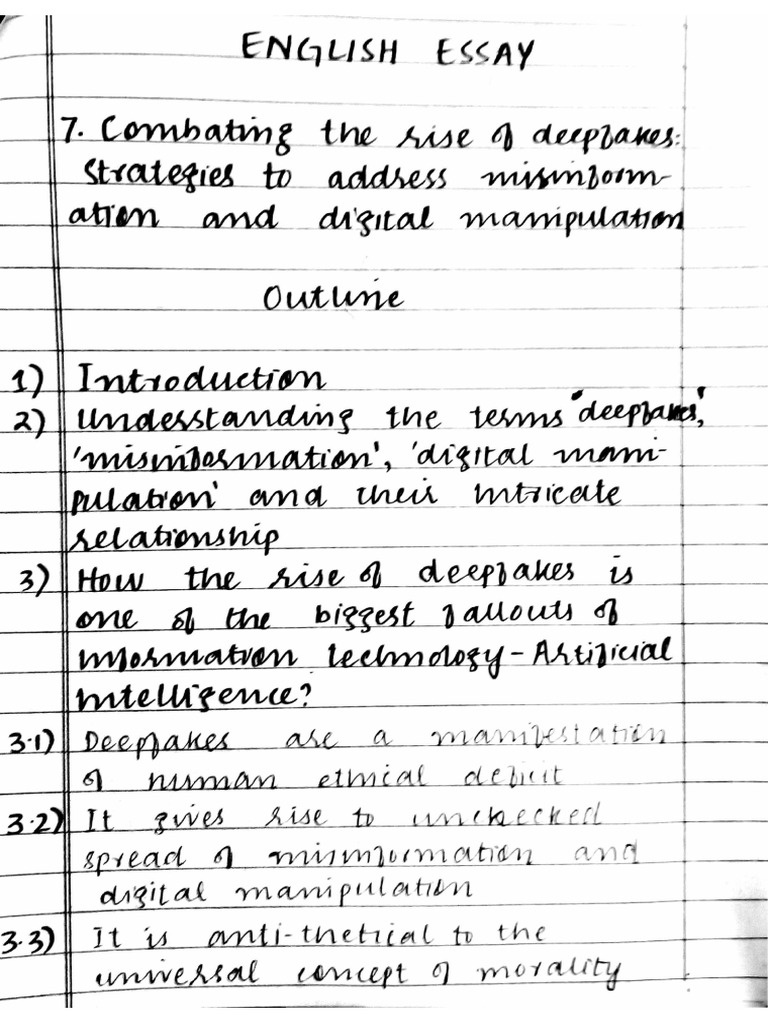 ENGLISH ESSAY
7. Combating the rise of deepfakes:
Strategies to address misinform-
ation and digital manipulation
Outline
1) Introduction
2) Understanding the terms 'deepfakes',
'misinformation', 'digital mani-
pulation' and their intricate
relationship
3) How the rise of deepfakes is
one of the biggest fallouts of
information technology - Artificial
intelligence?
3.1) Deepfakes are a manifestation
of human ethical deficit
3.2) It gives rise to unchecked
spread of misinformation and
digital manipulation
3.3) It is anti-thetical to the
universal concept of morality